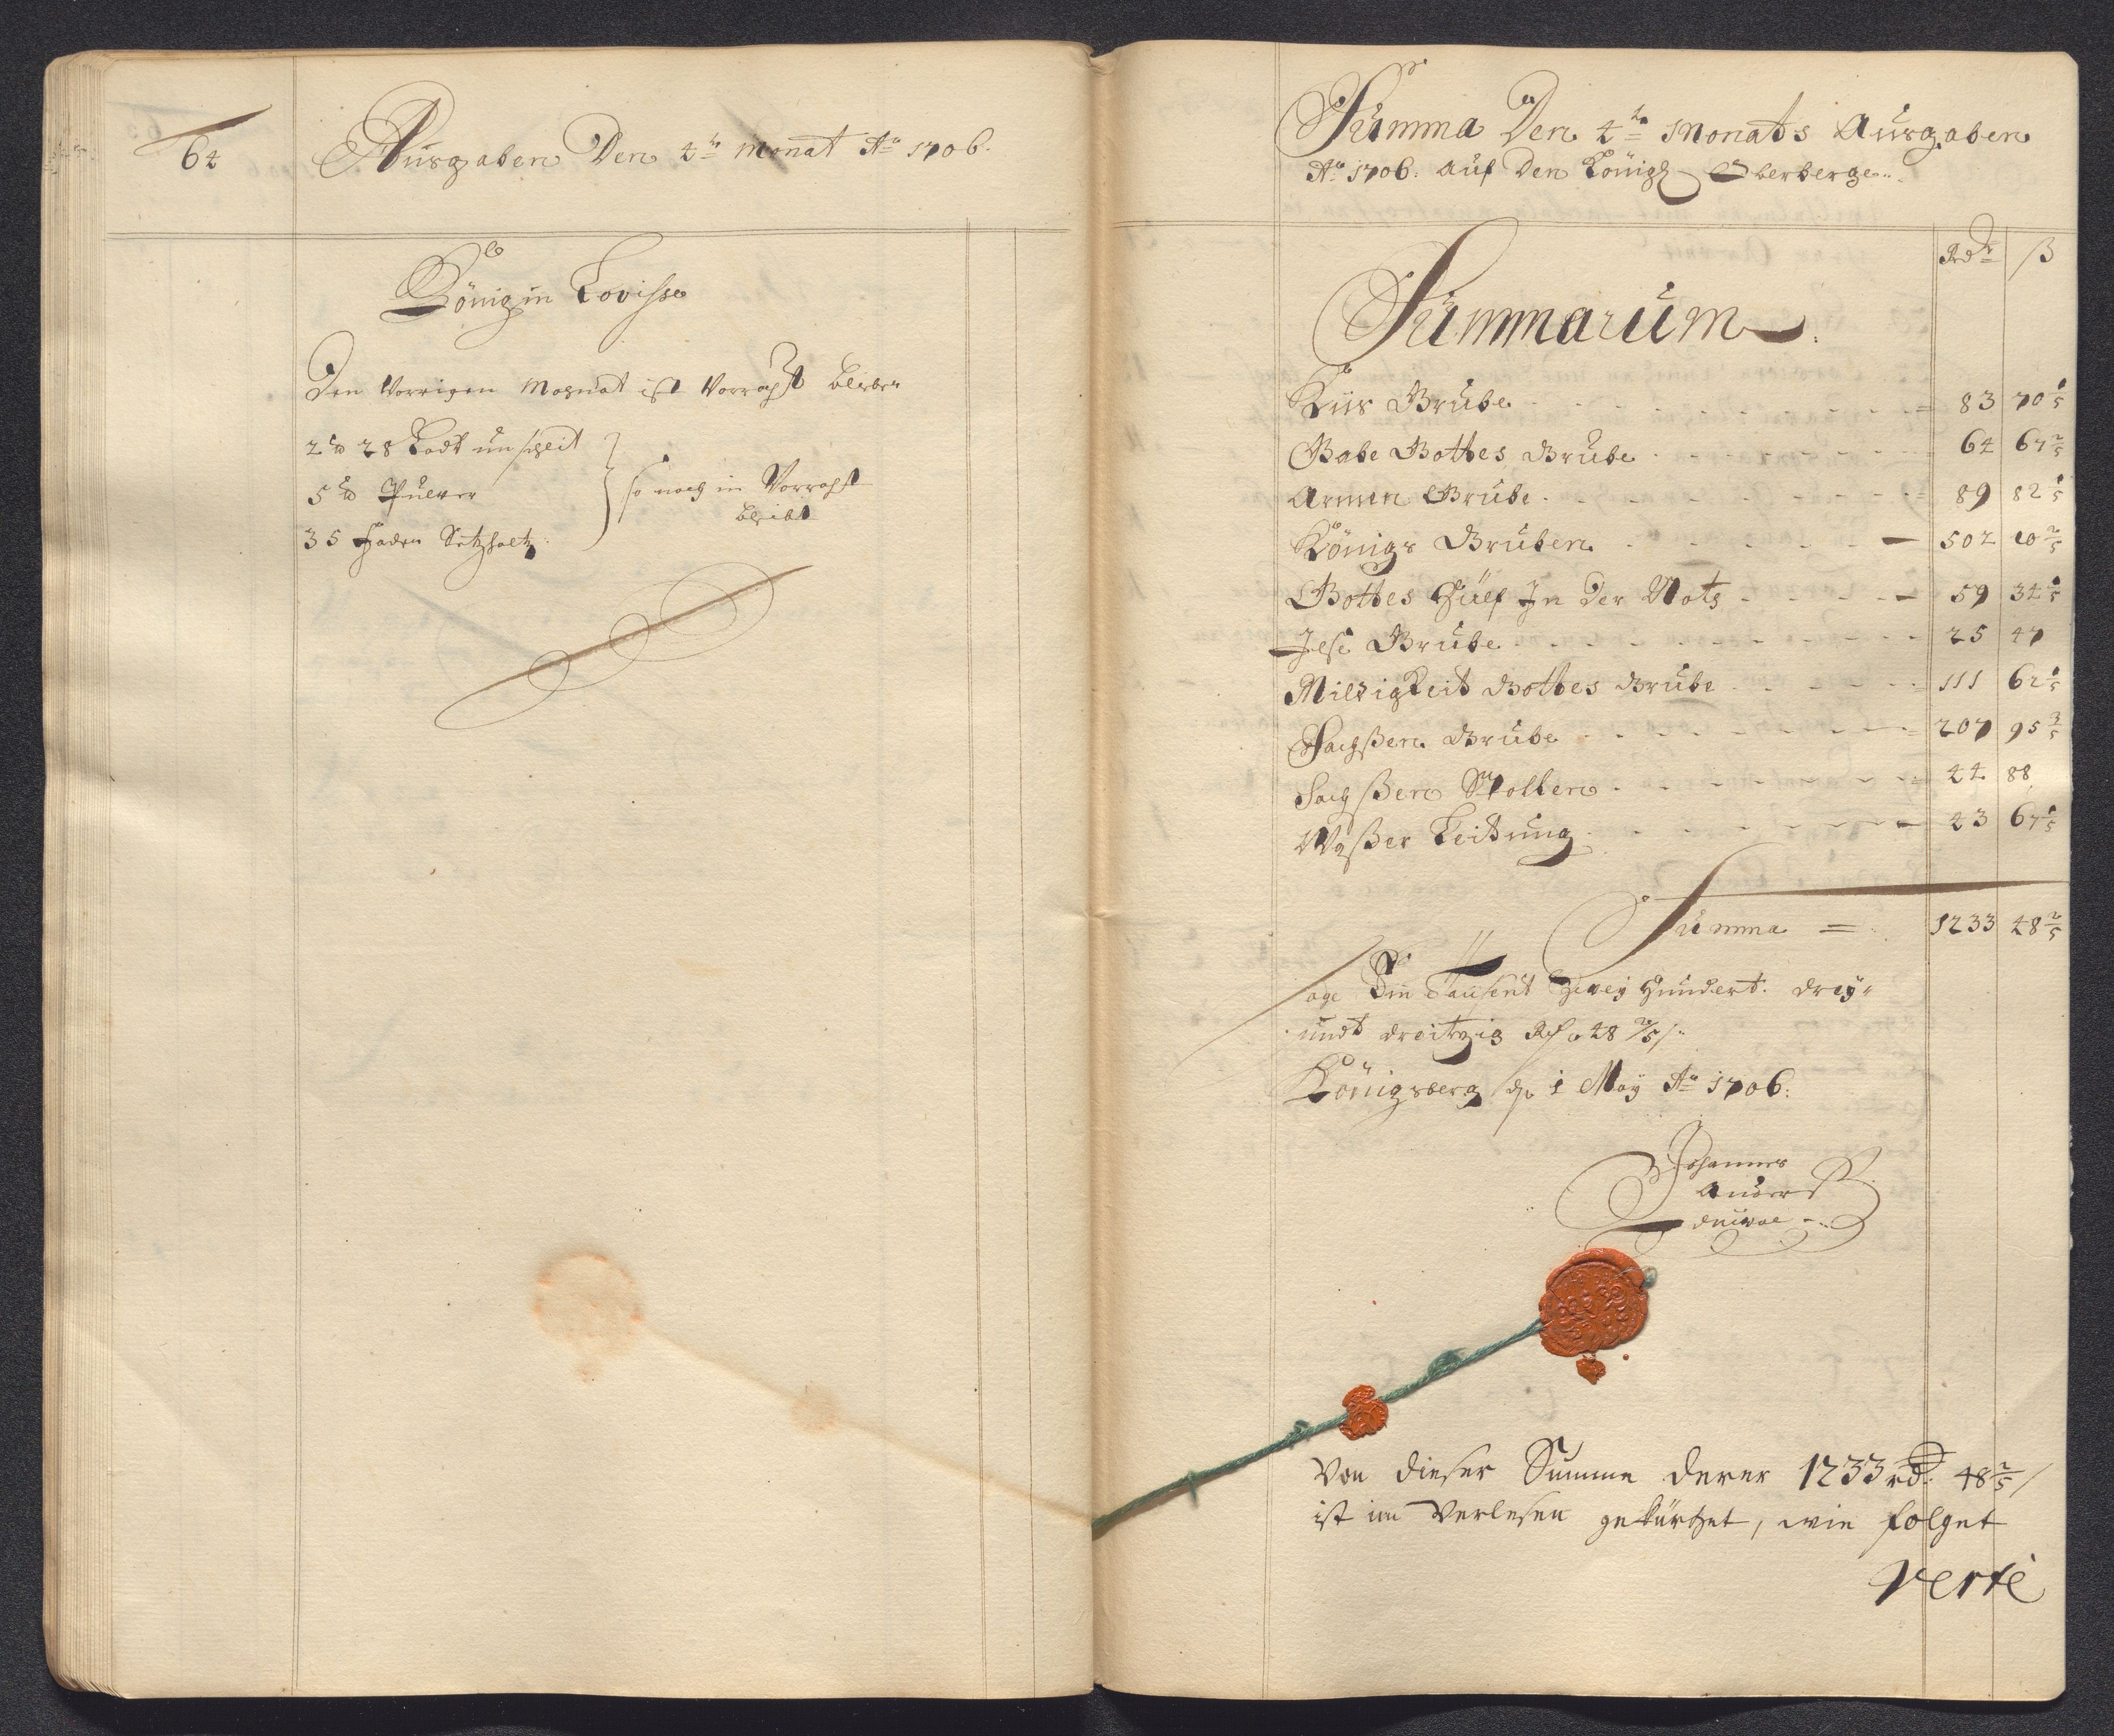 64
Ausgaben Den 4tn Monat Ao 1706.
Königin Lovisse
Den Vorrigen Mognat ist Vorraht blieben
2 ℔ 28 Lodt unscheit
5 ℔ Pulver
35 Faden Setzholtz
so noch in Vorraht
bleibt
Summa Den 4tn Monats Ausgaben
Ao 1706. auf Den Königl Oberberge
Rd ß
Summarum
Kiis Grube 83 70 1/5
Gabe Gottes Grube 64 67 2/5
Armen Grube 89 82 1/5
Königs Gruben 502 10 2/5
Gottes Hülf In Der Noth 59 34 1/5
Jese Grube 25 47
Mildigkeit Gottes Grube 111 62 1/5
Sachßen Grube 207 95 3/5
Sachßen Stollen 44 88
Waßer Leitung 43 67 1/5
Summa = 1233 48 2/5
Sage Ein Tausent Zwey Hundert drey
undt dreitzig Rd 48 2/5 ß
Königsberg d 1 May Ao 1706.
Johannes
Anders
Von dieser Summe derer 1233 rd. 48 2/5 ß
ist im Verlesen gekürtzet, wie folget
verte